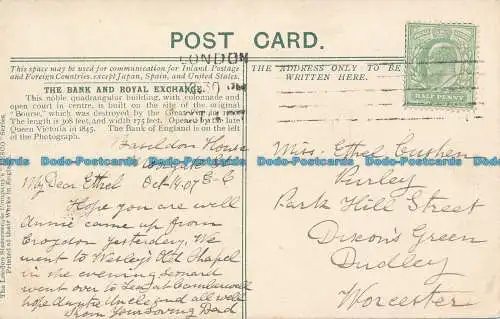 POST CARD.
This space may be used for communication for Inland Postage
and Foreign Countries, except Japan, Spain, and United States.
THE ADDRESS ONLY TO BE
WRITTEN HERE.
LONDON
HALF PENNY
THE BANK AND ROYAL EXCHANGE.
This noble quadrangular building, with colonnade and
open court in centre, is built on the site of the original
"Bourse," which was destroyed by the Great
The length is 308 feet, and width 175 feet. Opened by the late
Queen Victoria in 1845. The Bank of England is on the left
of the Photograph.
Basildon House
E-C
My Dear Ethel Oct 14-07
Hope you are well
Annie came up from
Croydon yesterday. We
went to Wesley's Old Chapel
in the evening Leonard
went over to Camberwell
hope Auntie Uncle and all well
From Your loving Dad
Miss Ethel Cushen
Purley
Park Hill Street
Dixon's Green
Dudley
Worcester
The London Stereoscopic Company's "Series.
Printed at their Works in England
Dodo-Postcards Dodo-Postcards Dodo-Postcards Dodo-Postcards Dodo-Postcards
Dodo-Postcards Dodo-Postcards Dodo-Postcards Dodo-Postcards Dodo-Postcards